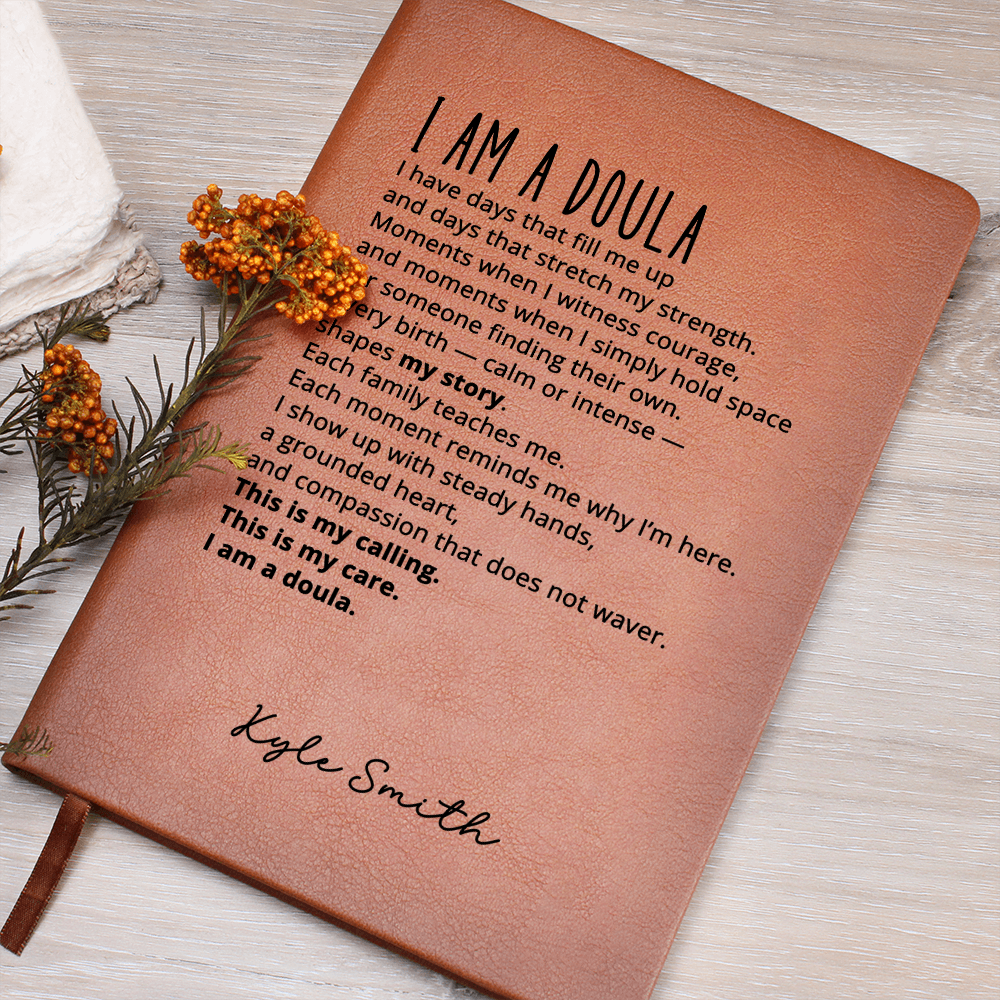 I AM A DOULA
I have days that fill me up
and days that stretch my strength.
Moments when I witness courage,
and moments when I simply hold space
someone finding their own.
birth — calm or intense —
shapes my story.
Each family teaches me.
Each moment reminds me why I'm here.
I show up with steady hands,
a grounded heart,
and compassion that does not waver.
This is my calling.
This is my care.
I am a doula.
Kyle Smith